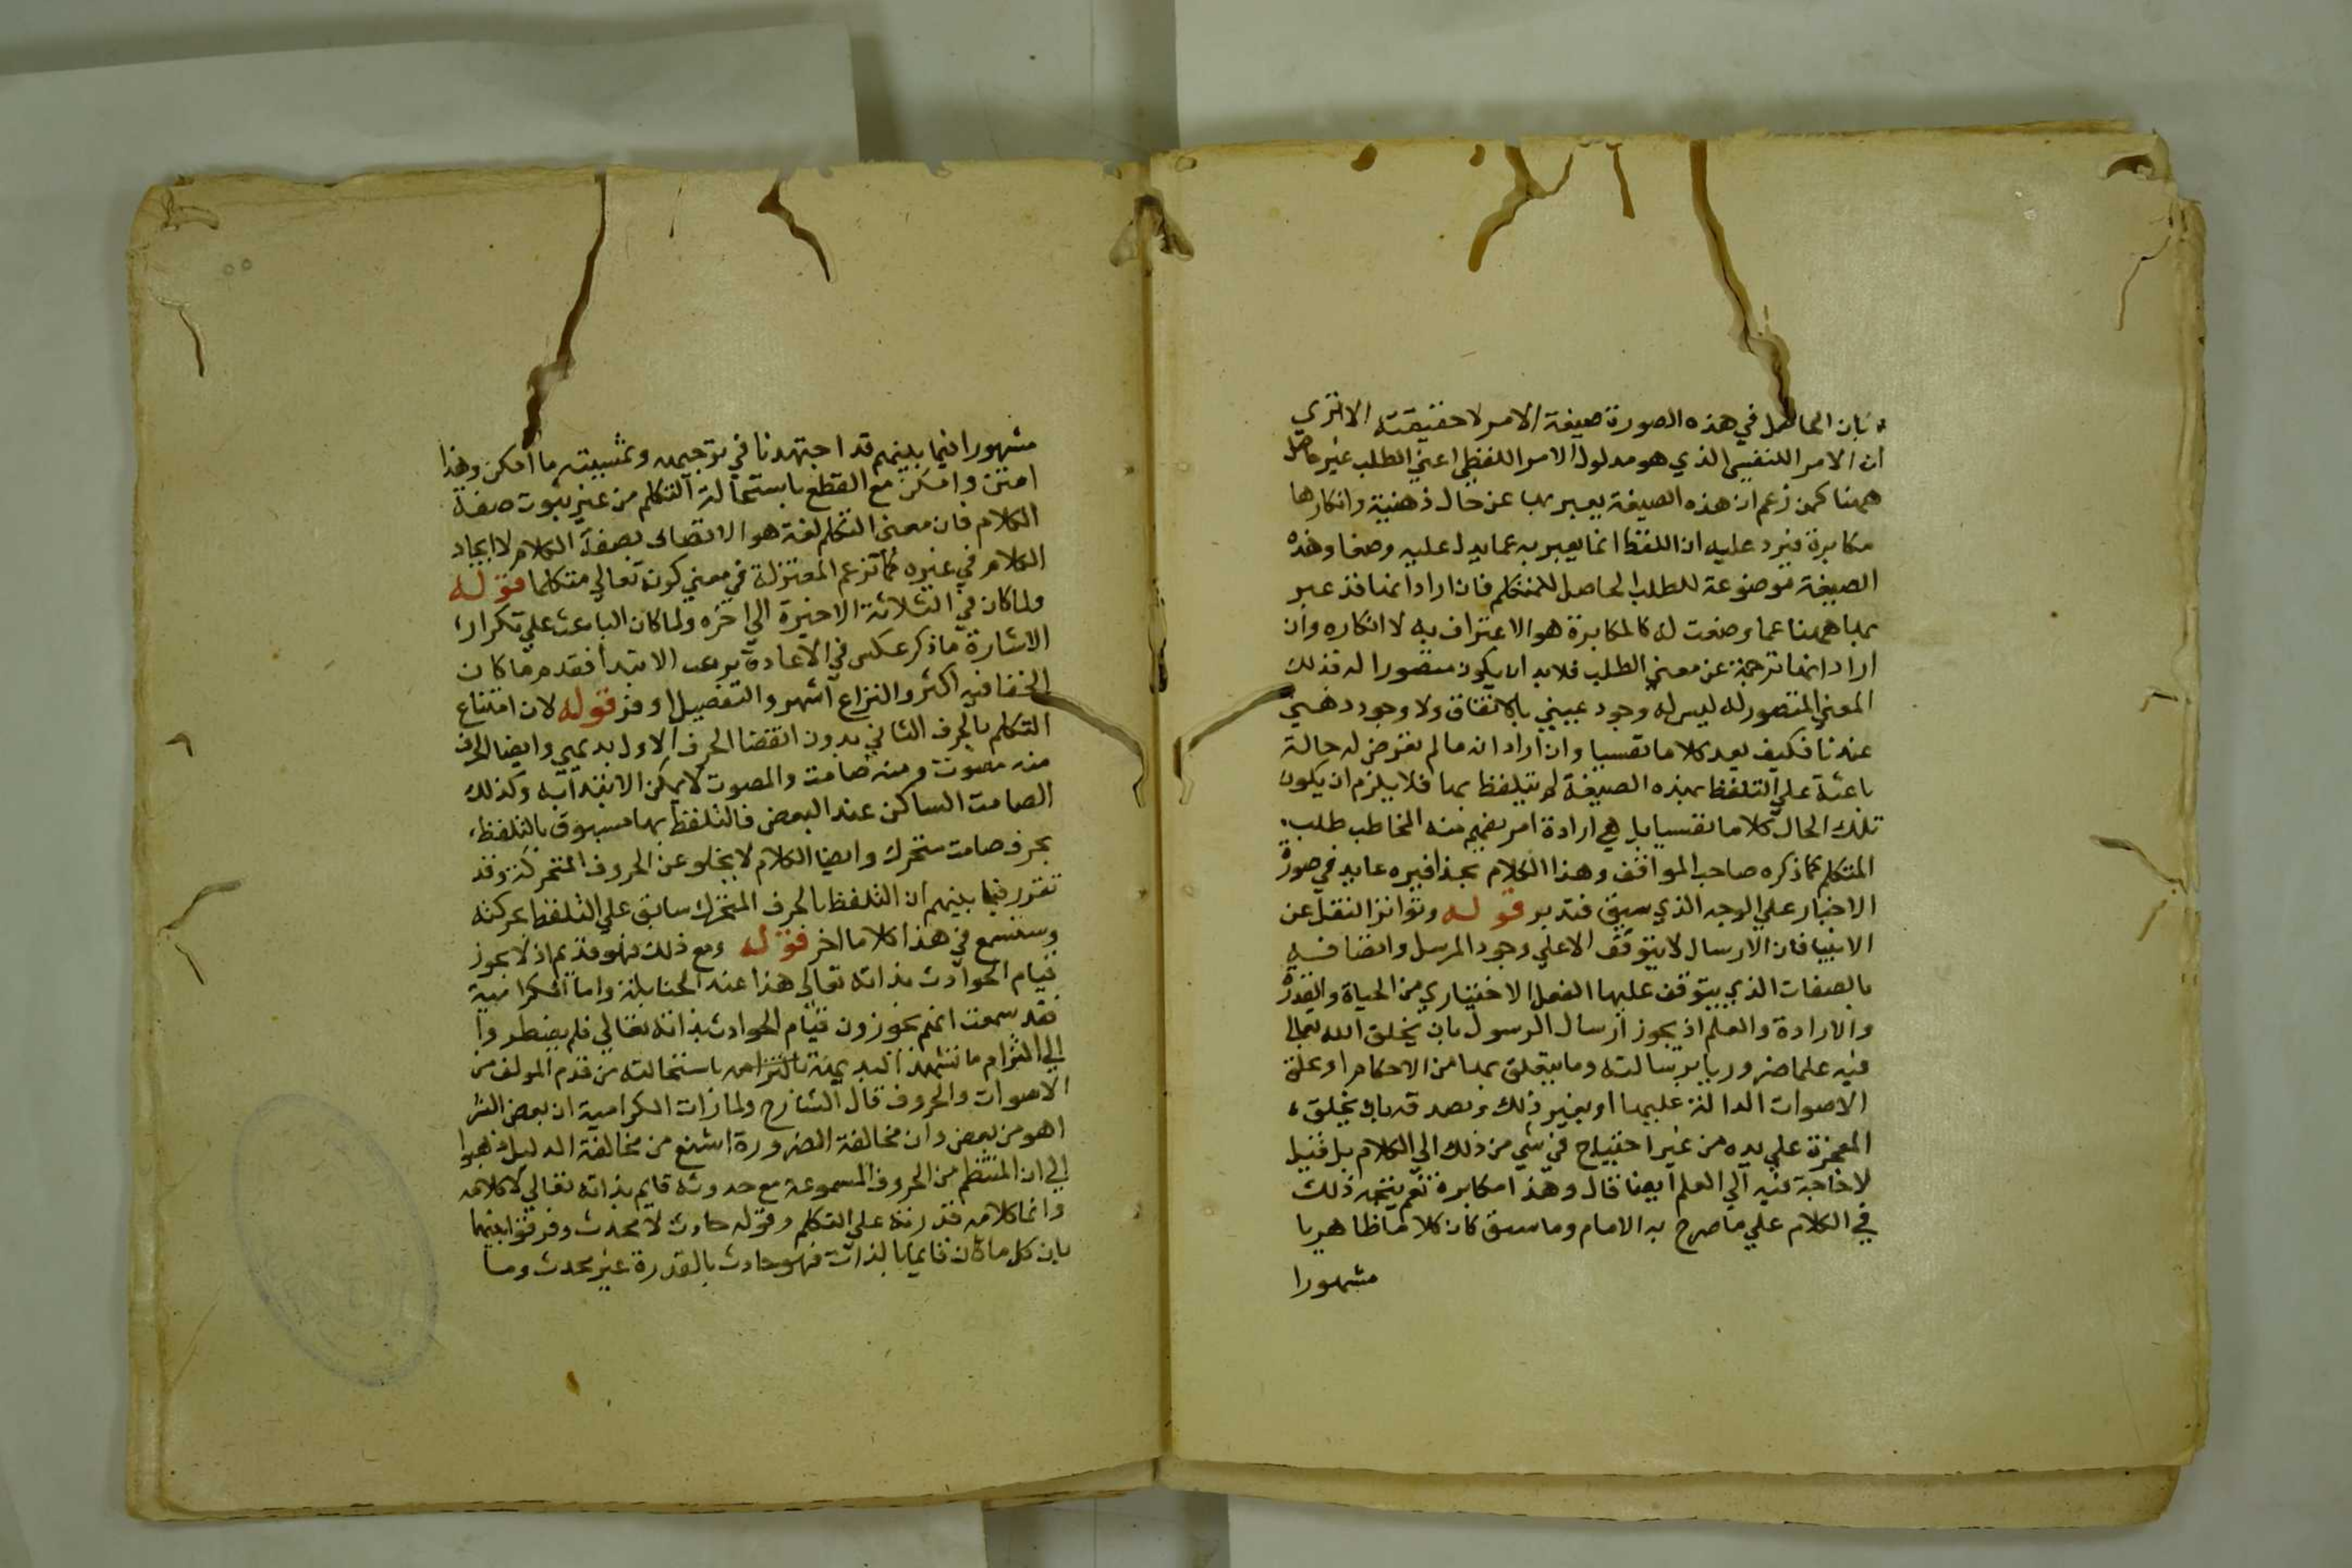 بان الحاصل في هذه الصورة صيغة الامر لا حقيقته الا تري
ان الامر النفسي الذي هو مدلول الامر اللفظي اعني الطلب غير حاصل
ههنا كمن زعم ان هذه الصيغة يعبر بها عن حال ذهنية وانكارها
مكابرة فيرد عليه ان اللفظ انما يعبر به عما يدل عليه وضعا وهذه
الصيغة موضوعة للطلب الحاصل للمتكلم فان اراد انها قد عبر
بها ههنا عما وضعت له فالمكابرة هو الاعتراف به لا انكاره وان
اراد انها ترجمة عن معني الطلب فلابد ان يكون متصورا له فذلك
المعني المتصور له ليس له وجود عيني بالاتفاق ولا وجود ذهني
عندنا فكيف يعد كلاما نفسيا وان اراد انه ما لم يعرض له حالة
باعثة علي التلفظ بهذه الصيغة لم يتلفظ بها فلا يلزم ان يكون
تلك الحال كلاما نفسيا بل هي ارادة امر يفهم منه المخاطب طلب
المتكلم كما ذكره صاحب المواقف وهذا الكلام بحذافيره عايد في صورة
الاخبار علي الوجه الذي سبق فتدبر قوله وتواتر النقل عن
الانبيا فان الارسال لا يتوقف الا علي وجود المرسل واتصافه
بالصفات الذي يتوقف عليها الفعل الاختياري من الحياة والقدرة
والارادة والعلم اذ يجوز ارسال الرسول بان يخلق الله تعالي
فيه علما ضروريا برسالته وما يتعلق بها من الاحكام او يخلق
الاصوات الدالة عليها او بغير ذلك ويصدقه بان يخلق
المعجزة علي يده من غير احتياج في شي من ذلك الي الكلام بل قيل
لا حاجة فيه الي العلم ايضا قال وهذا مكابرة نعم يتجه ذلك
في الكلام علي ما صرح به الامام وما سبق كان كلاما ظاهريا
مشهورا
مشهورا فيما بينهم قد اجتهدنا في توجيهه وتمشيته ما امكن وهذا
امتن وامكن مع القطع باستحالة التكلم من غير ثبوت صفة
الكلام فان معني التكلم لغة هو الاتصاف بصفة الكلام لا ايجاد
الكلام في غيره كما تزعم المعتزلة في معني كونه تعالي متكلما قوله
ولما كان في الثلاثة الاخيرة الي اخره ولما كان الباعث علي تكرار
الاشارة ما ذكر عكس في الاعادة ترتيب الابتدا فقدم ما كان
الخفا فيه اكثر والنزاع اشهر والتفصيل اوفر قوله لان امتناع
التكلم بالحرف الثاني بدون انقضا الحرف الاول بديهي وايضا الحرف
منه مصوت ومنه صامت والمصوت لا يمكن الابتدا به وكذلك
الصامت الساكن عند البعض فالتلفظ بها مسبوق بالتلفظ
بحرف صامت متحرك وايضا الكلام لا يخلو عن الحروف المتحركة وقد
تقرر فيما بينهم ان التلفظ بالحرف المتحرك سابق علي التلفظ بحركته
وستسمع في هذا كلاما اخر قوله ومع ذلك فهو قديم اذ لا يجوز
قيام الحوادث بذاته تعالي هذا عند الحنابلة واما الكرامية
فقد سمعت انهم يجوزون قيام الحوادث بذاته تعالي فلم يضطروا
الي التزام ما تشهد البديهة باستحالته من قدم المولف من
الاصوات والحروف قال الشارح ولما رات الكرامية ان بعض الشر
اهون من بعض وان مخالفة الضرورة اشنع من مخالفة الدليل ذهبوا
الي ان المنتظم من الحروف المسموعة مع حدوثه قايم بذاته تعالي لا كلامه
وانما كلامه قدرته علي التكلم وقوله حادث لا محدث وفرقوا بينهما
بان كل ما كان قايما بالذات فهو حادث بالقدرة غير محدث وما